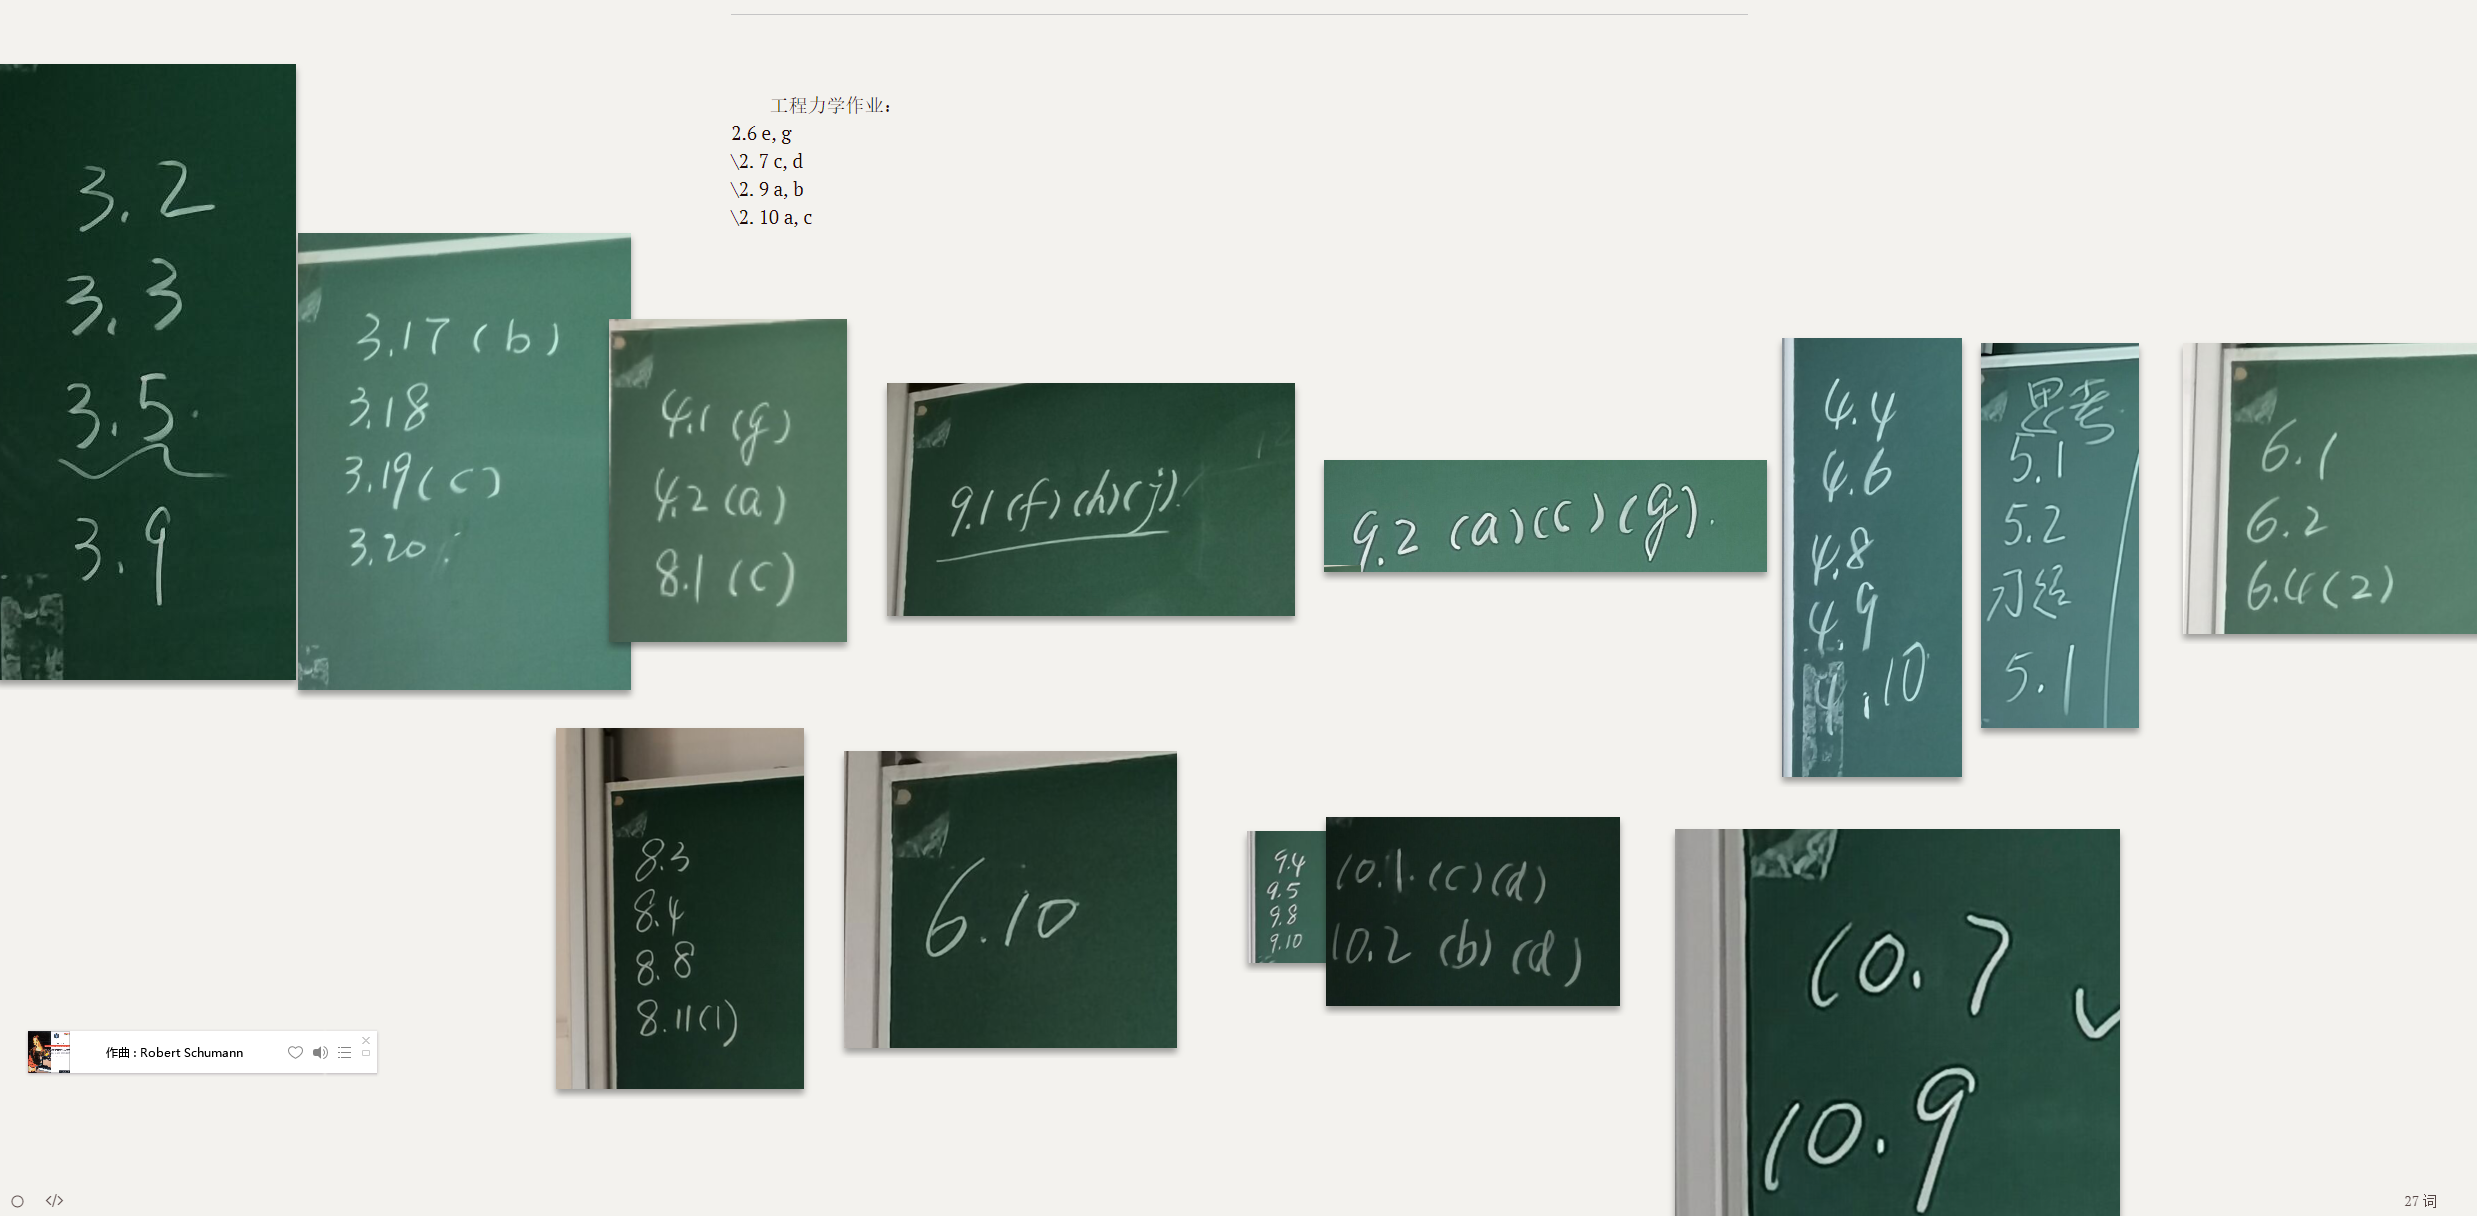 工程力学作业：
2.6 e, g
\2. 7 c, d
\2. 9 a, b
\2. 10 a, c
3.2
3.3
3.5.
3.9
3.17 (b)
3.18
3.19 (c)
3.20
4.1 (g)
4.2 (a)
8.1 (c)
9.1 (f) (h) (j)
9.2 (a) (c) (g).
4.4
4.6
4.8
4.9
4.10
思考
5.1
5.2
习题
5.1
6.1
6.2
6.4 (2)
8.3
8.4
8.8
8.11 (1)
6.10
9.4
9.5
9.8
9.10
10.1. (c) (d)
10.2 (b) (d)
10.7
10.9
作曲 : Robert Schumann
</>
27 词